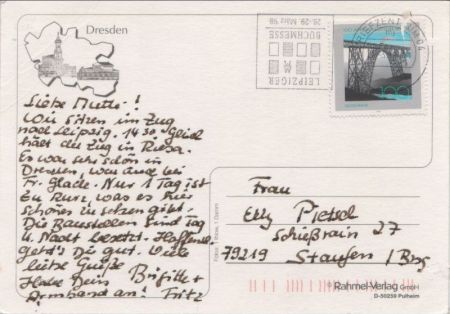 Dresden
Liebe Mutti!
Wir sitzen im Zug
nach Leipzig. 14.30 Gleich
hält die Zug in Riesa.
Es war sehr schön in
Dresden, war auch bei
Fr. Glade. Nur 1 Tag ist
zu kurz, was es hier
schönes zu sehen gibt.
Die Baustellen sind Tag
u. Nacht besetzt. Hoffentl.
geht's Dir gut. Viele
liebe Grüße
Habe Dein Brigitte
Armband an! Fritz
LEIPZIGER
BUCHMESSE
26.-29. März 98
BRIEFZENTRUM 04
100
Frau
Elly Pietsch
Schießrain 27
79219 Staufen / Brsg
Rahmel-Verlag GmbH
D-50259 Pulheim